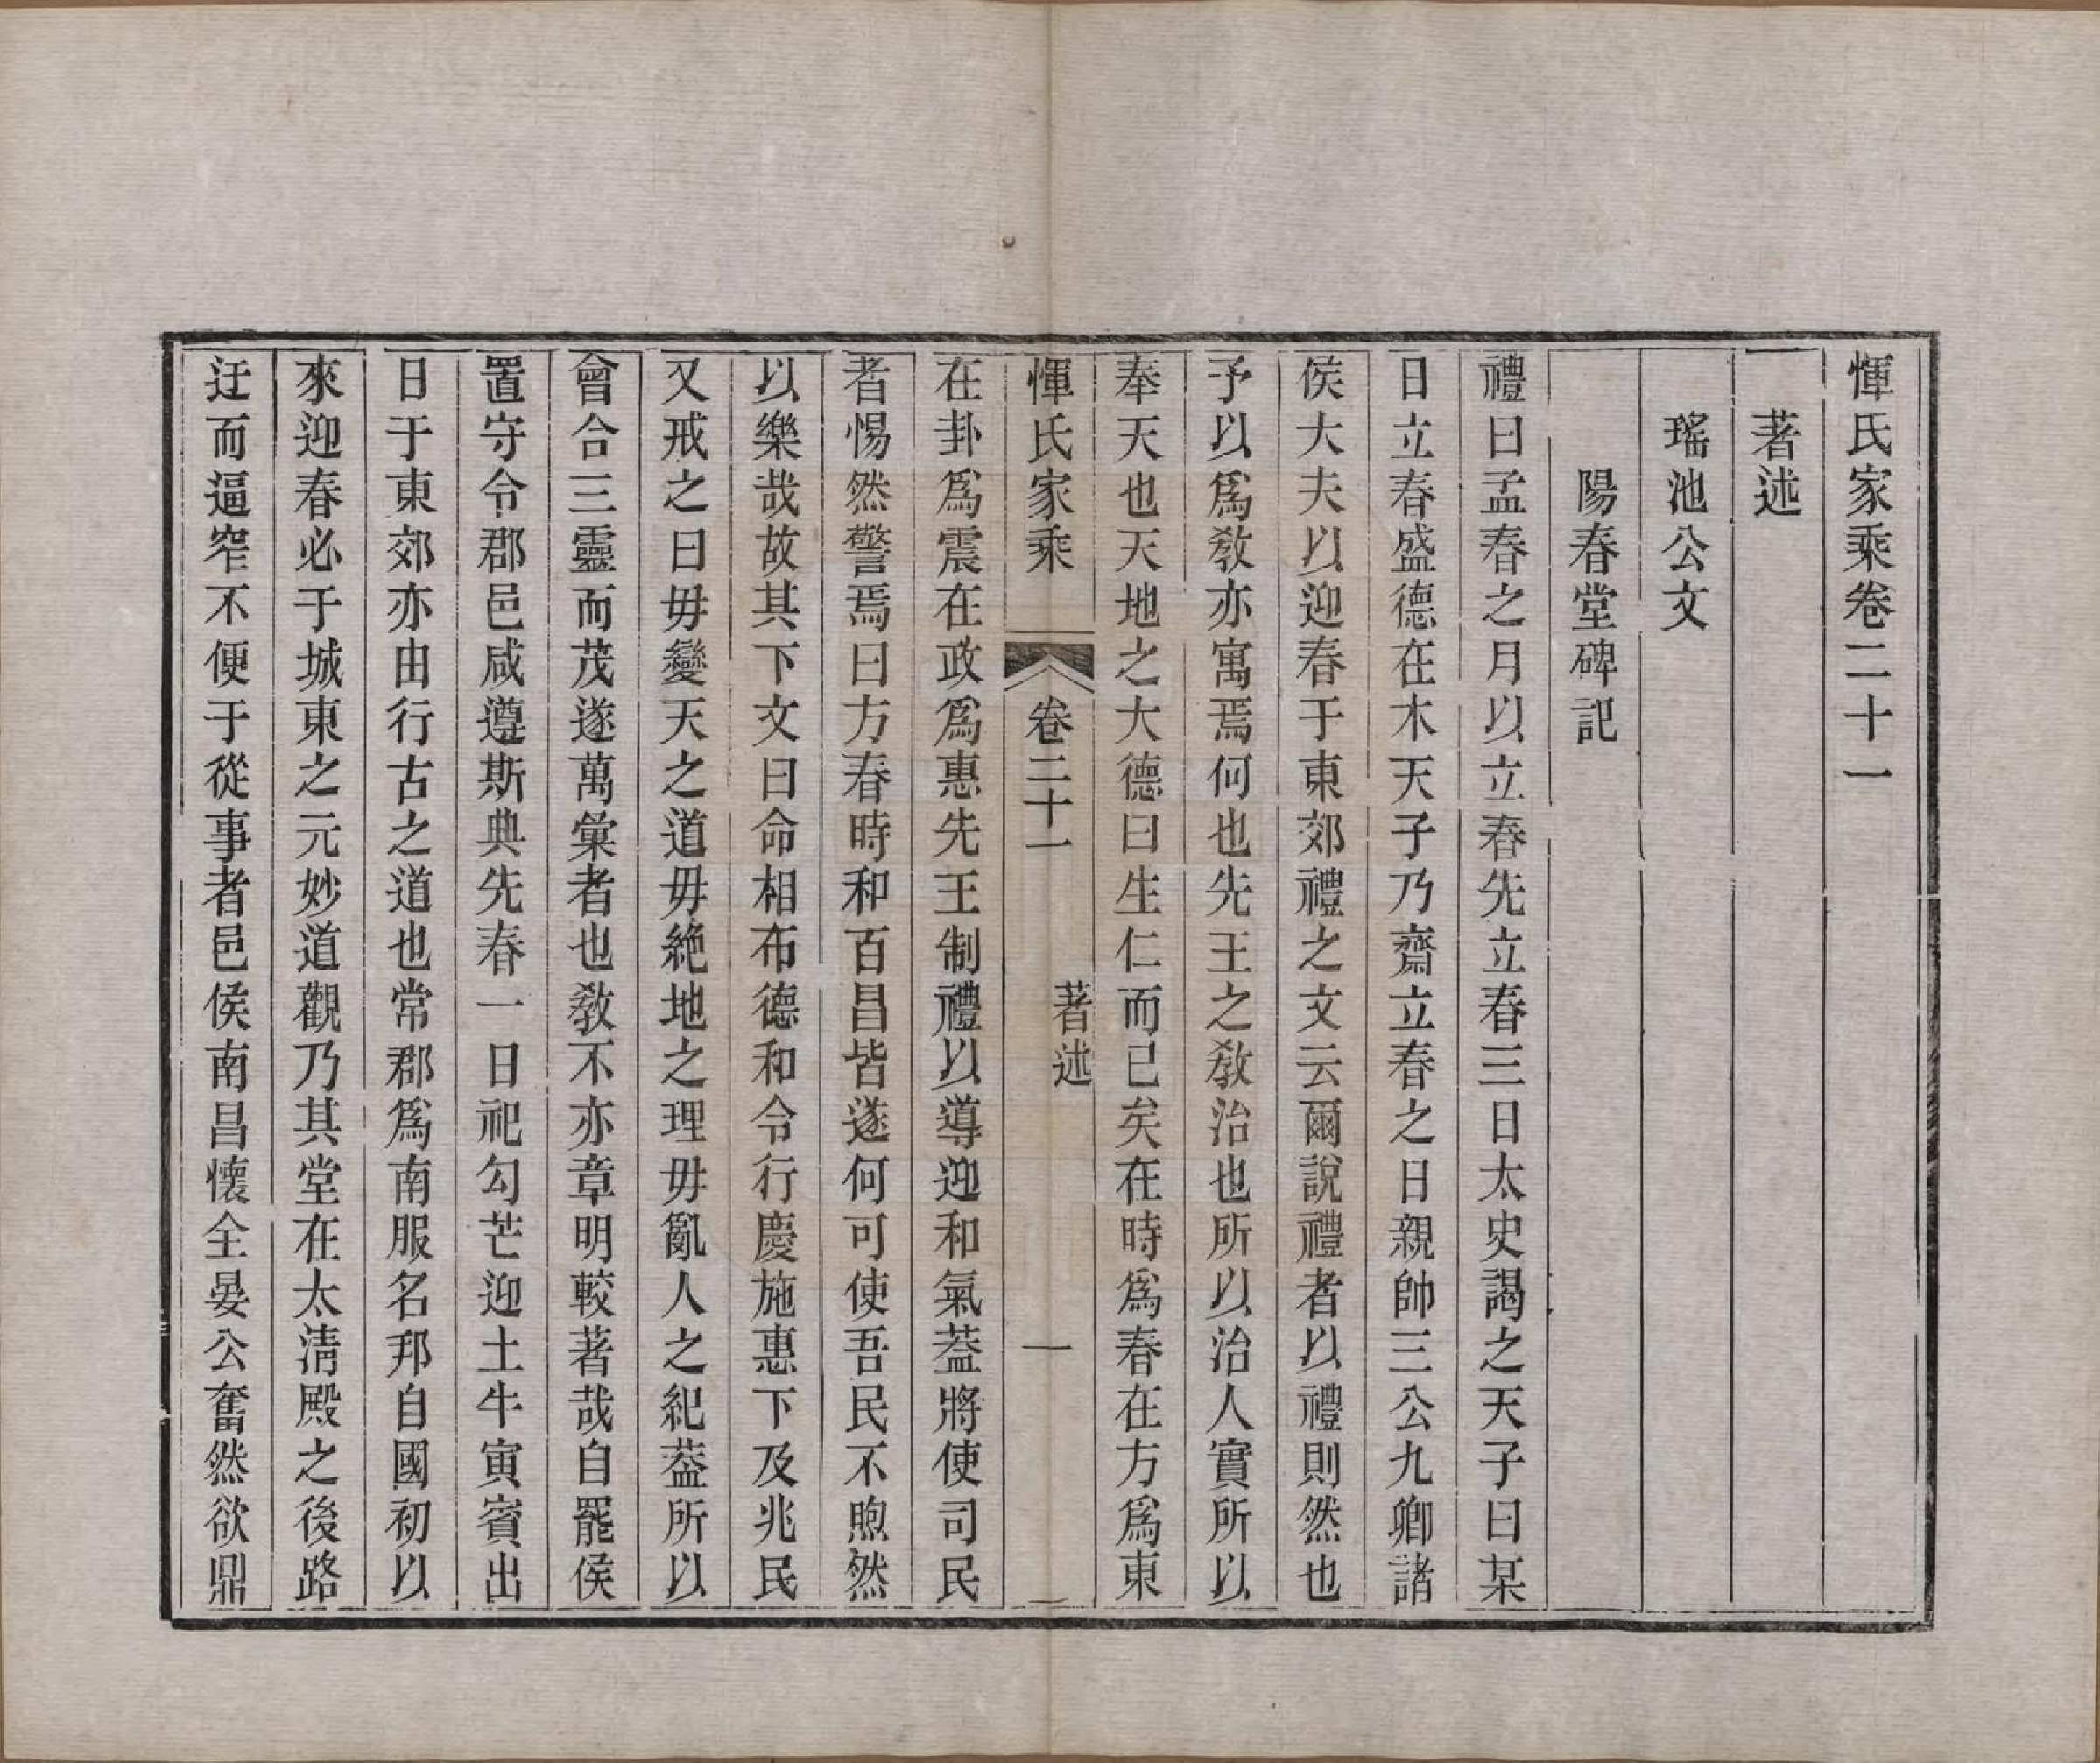 惲氏家乘卷二十一
著述
瑤池公文
陽春堂碑記
禮曰孟春之月以立春先立春三日太史謁之天子曰某
日立春盛德在木天子乃齋立春之日親帥三公九卿諸
侯大夫以迎春于東郊禮之文云爾說禮者以禮則然也
予以爲敎亦寓焉何也先王之敎治也所以治人實所以
奉天也天地之大德曰生仁而已矣在時爲春在方爲東
惲氏家乘 卷二十一 著述 一
在卦爲震在政爲惠先王制禮以導迎和氣葢將使司民
者惕然警焉曰方春時和百昌皆遂何可使吾民不煦然
以樂哉故其下文曰命相布德和令行慶施惠下及兆民
又戒之曰毋變天之道毋絶地之理毋亂人之紀葢所以
會合三靈而茂遂萬彙者也敎不亦章明較著哉自罷侯
置守令郡邑咸遵斯典先春一日祀勾芒迎土牛寅賓出
日于東郊亦由行古之道也常郡爲南服名邦自國初以
來迎春必于城東之元妙道觀乃其堂在太淸殿之後路
迂而逼窄不便于從事者邑侯南昌懷全晏公奮然欲鼎